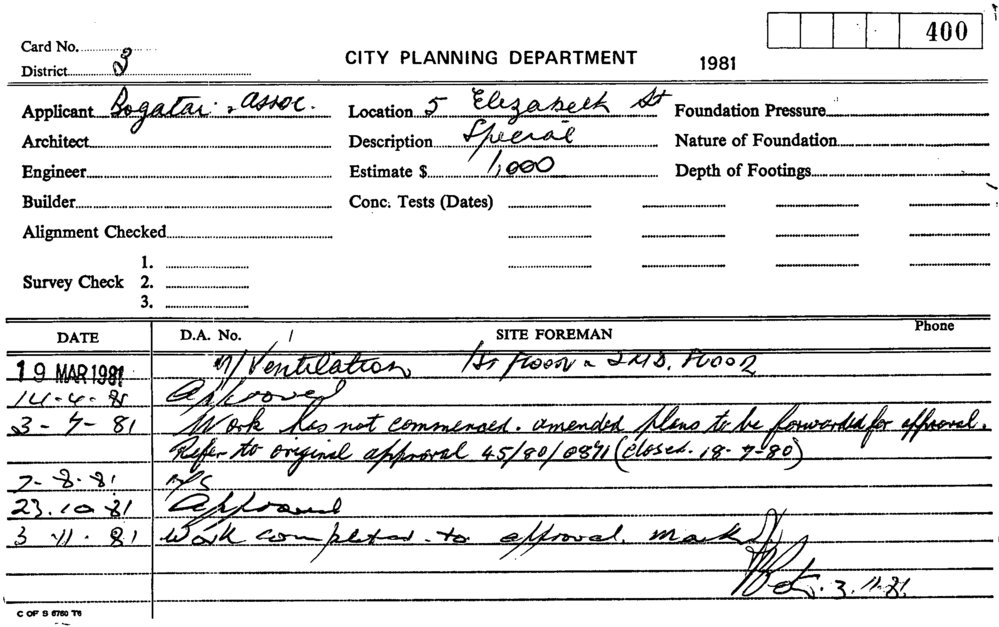 400
Card No.
District 3
CITY PLANNING DEPARTMENT 1981
Applicant Bogatai & assoc. Location 5 Elizabeth St Foundation Pressure
Architect Description Special Nature of Foundation
Engineer Estimate $ 1,000 Depth of Footings
Builder Conc. Tests (Dates)
Alignment Checked
1.
Survey Check 2.
3.
DATE D.A. No. / SITE FOREMAN Phone
19 MAR 1981 M/Ventilation 1st FLOOR & 2ND. FLOOR
14-4-81 Approved
3-7-81 Work has not commenced. amended plans to be forwarded for approval.
Refer to original approval 45/80/0871 (closed. 18-7-80)
7-8-81
23.10.81 Approved
3.11.81 Work completed to approval. mark
3.11.81.
C OF S 6760 T6